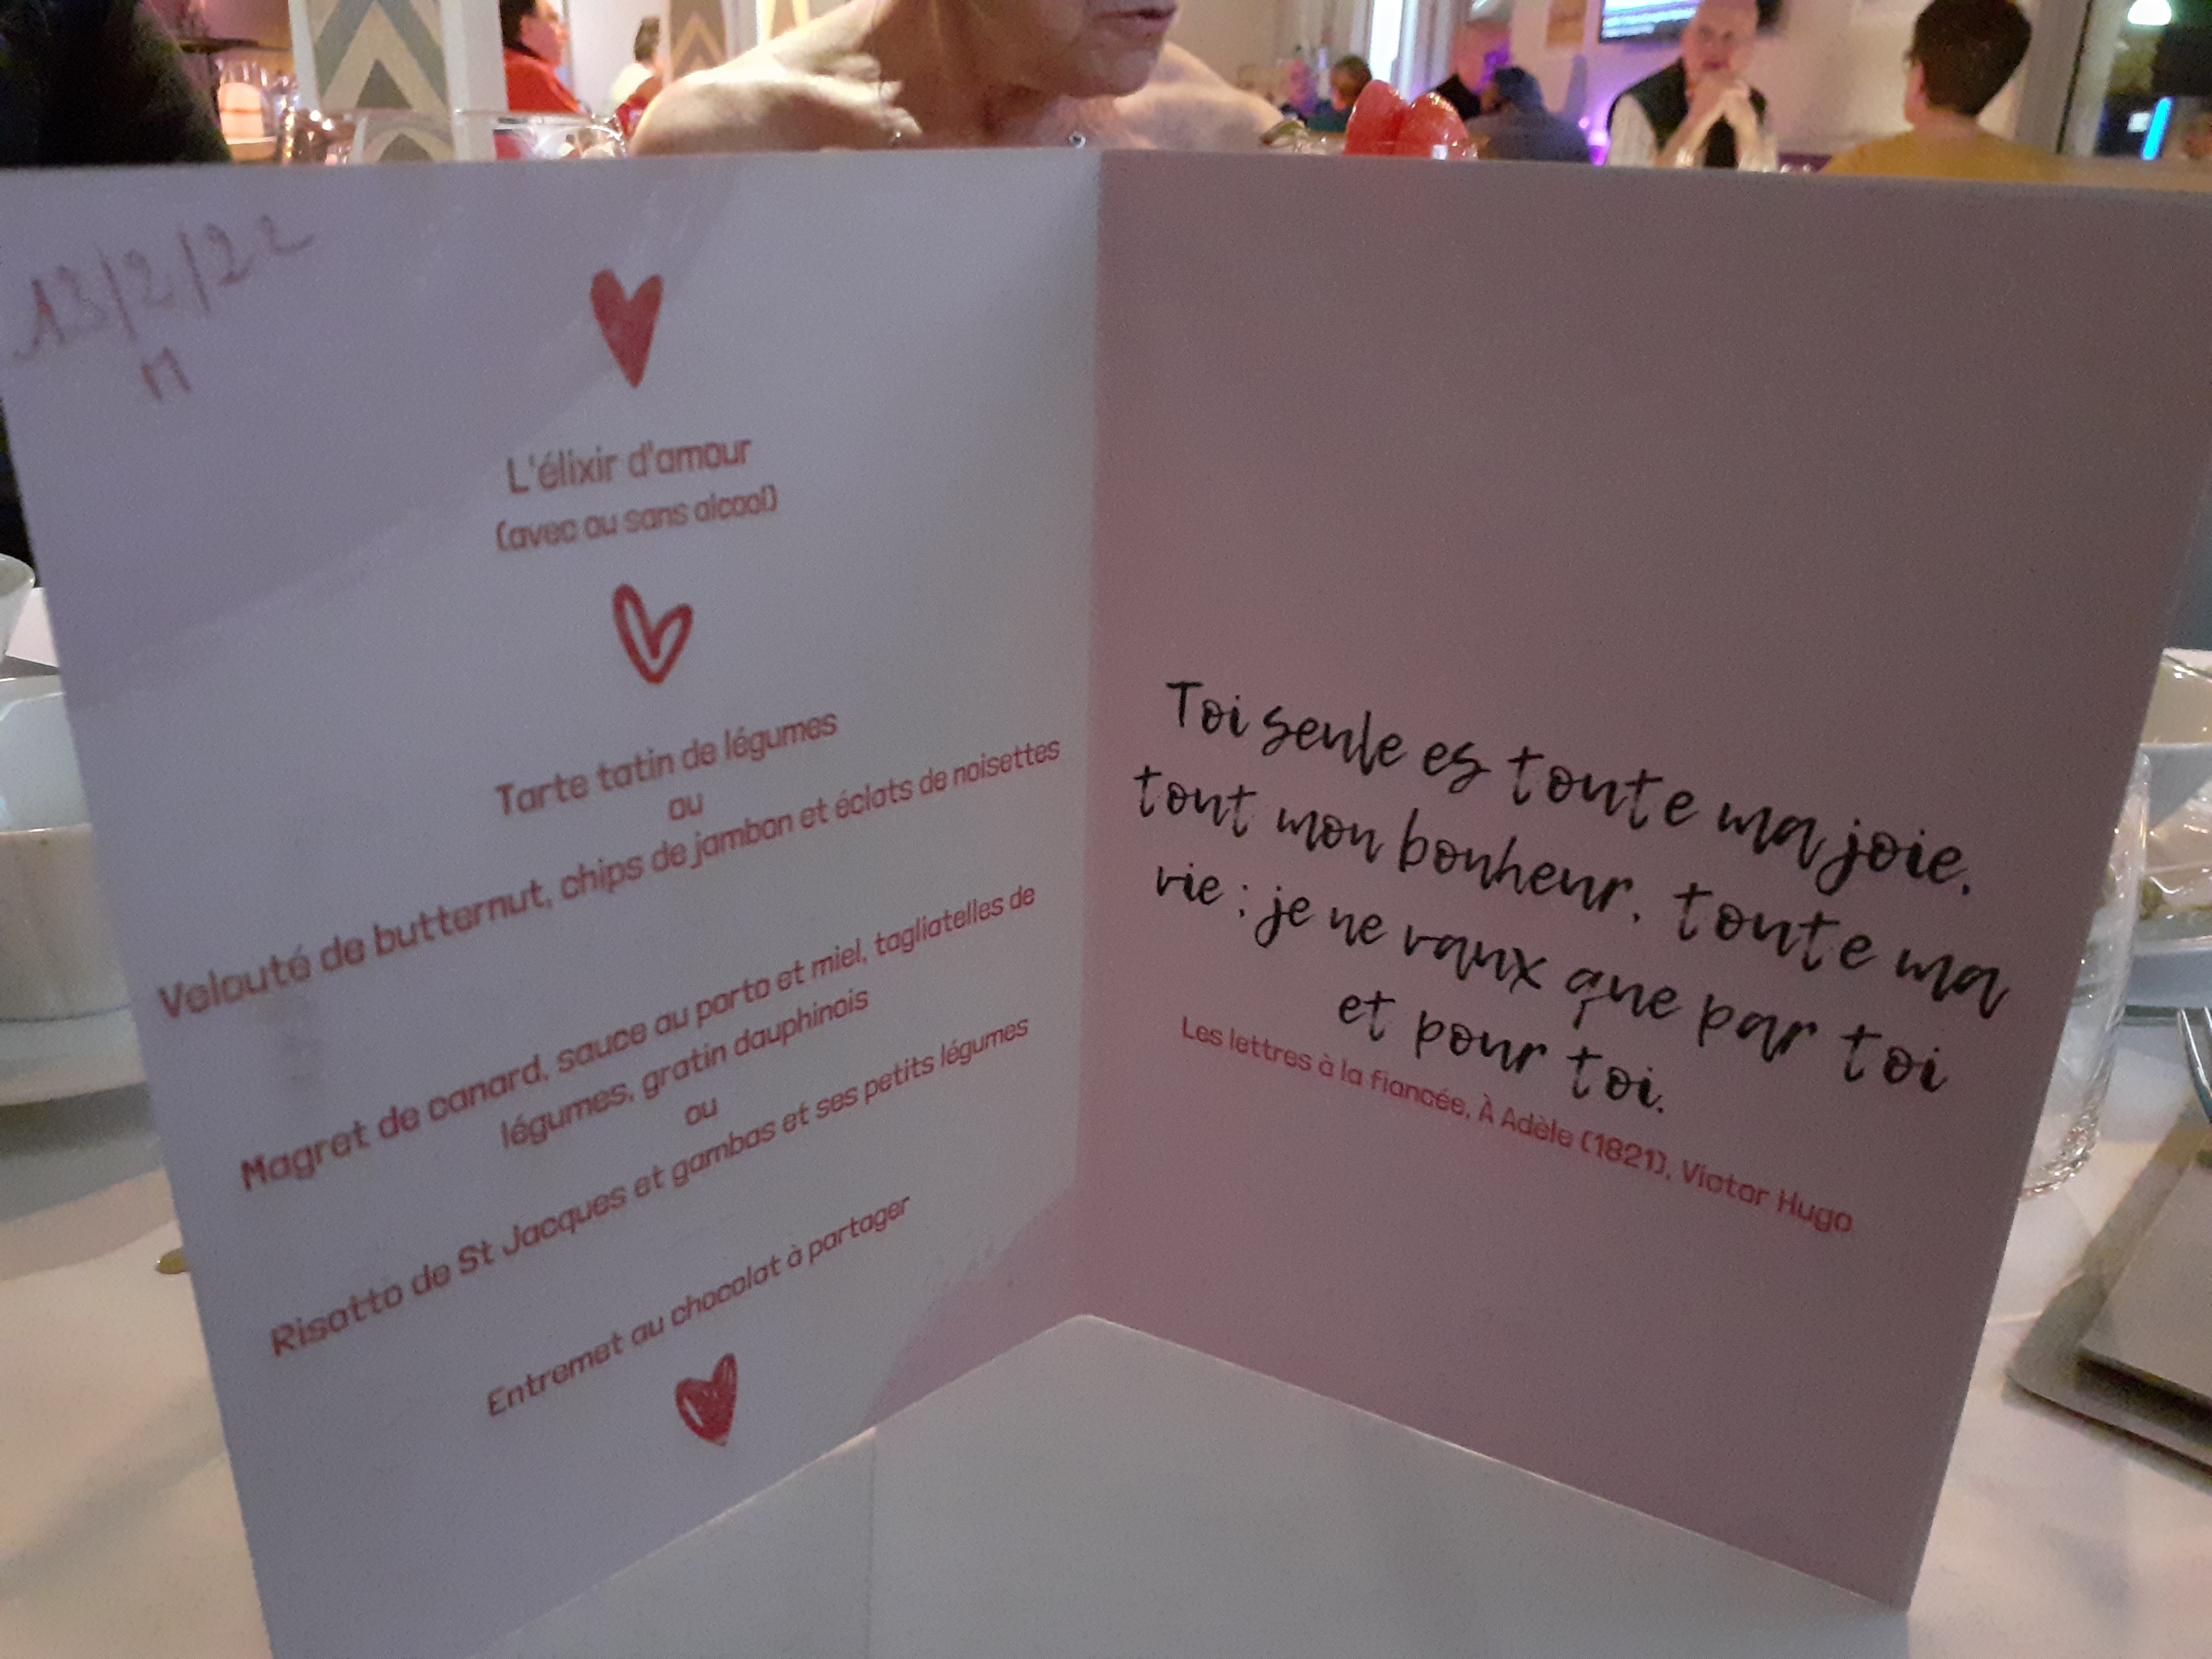 13/2/22
M
L'élixir d'amour
(avec ou sans alcool)
Tarte tatin de légumes
ou
Velouté de butternut, chips de jambon et éclats de noisettes
Magret de canard, sauce au porto et miel, tagliatelles de
légumes, gratin dauphinois
ou
Risotto de St Jacques et gambas et ses petits légumes
Entremet au chocolat à partager
Toi seule es toute ma joie,
tout mon bonheur, toute ma
vie ; je ne vaux que par toi
et pour toi.
Les lettres à la fiancée, À Adèle (1821), Victor Hugo